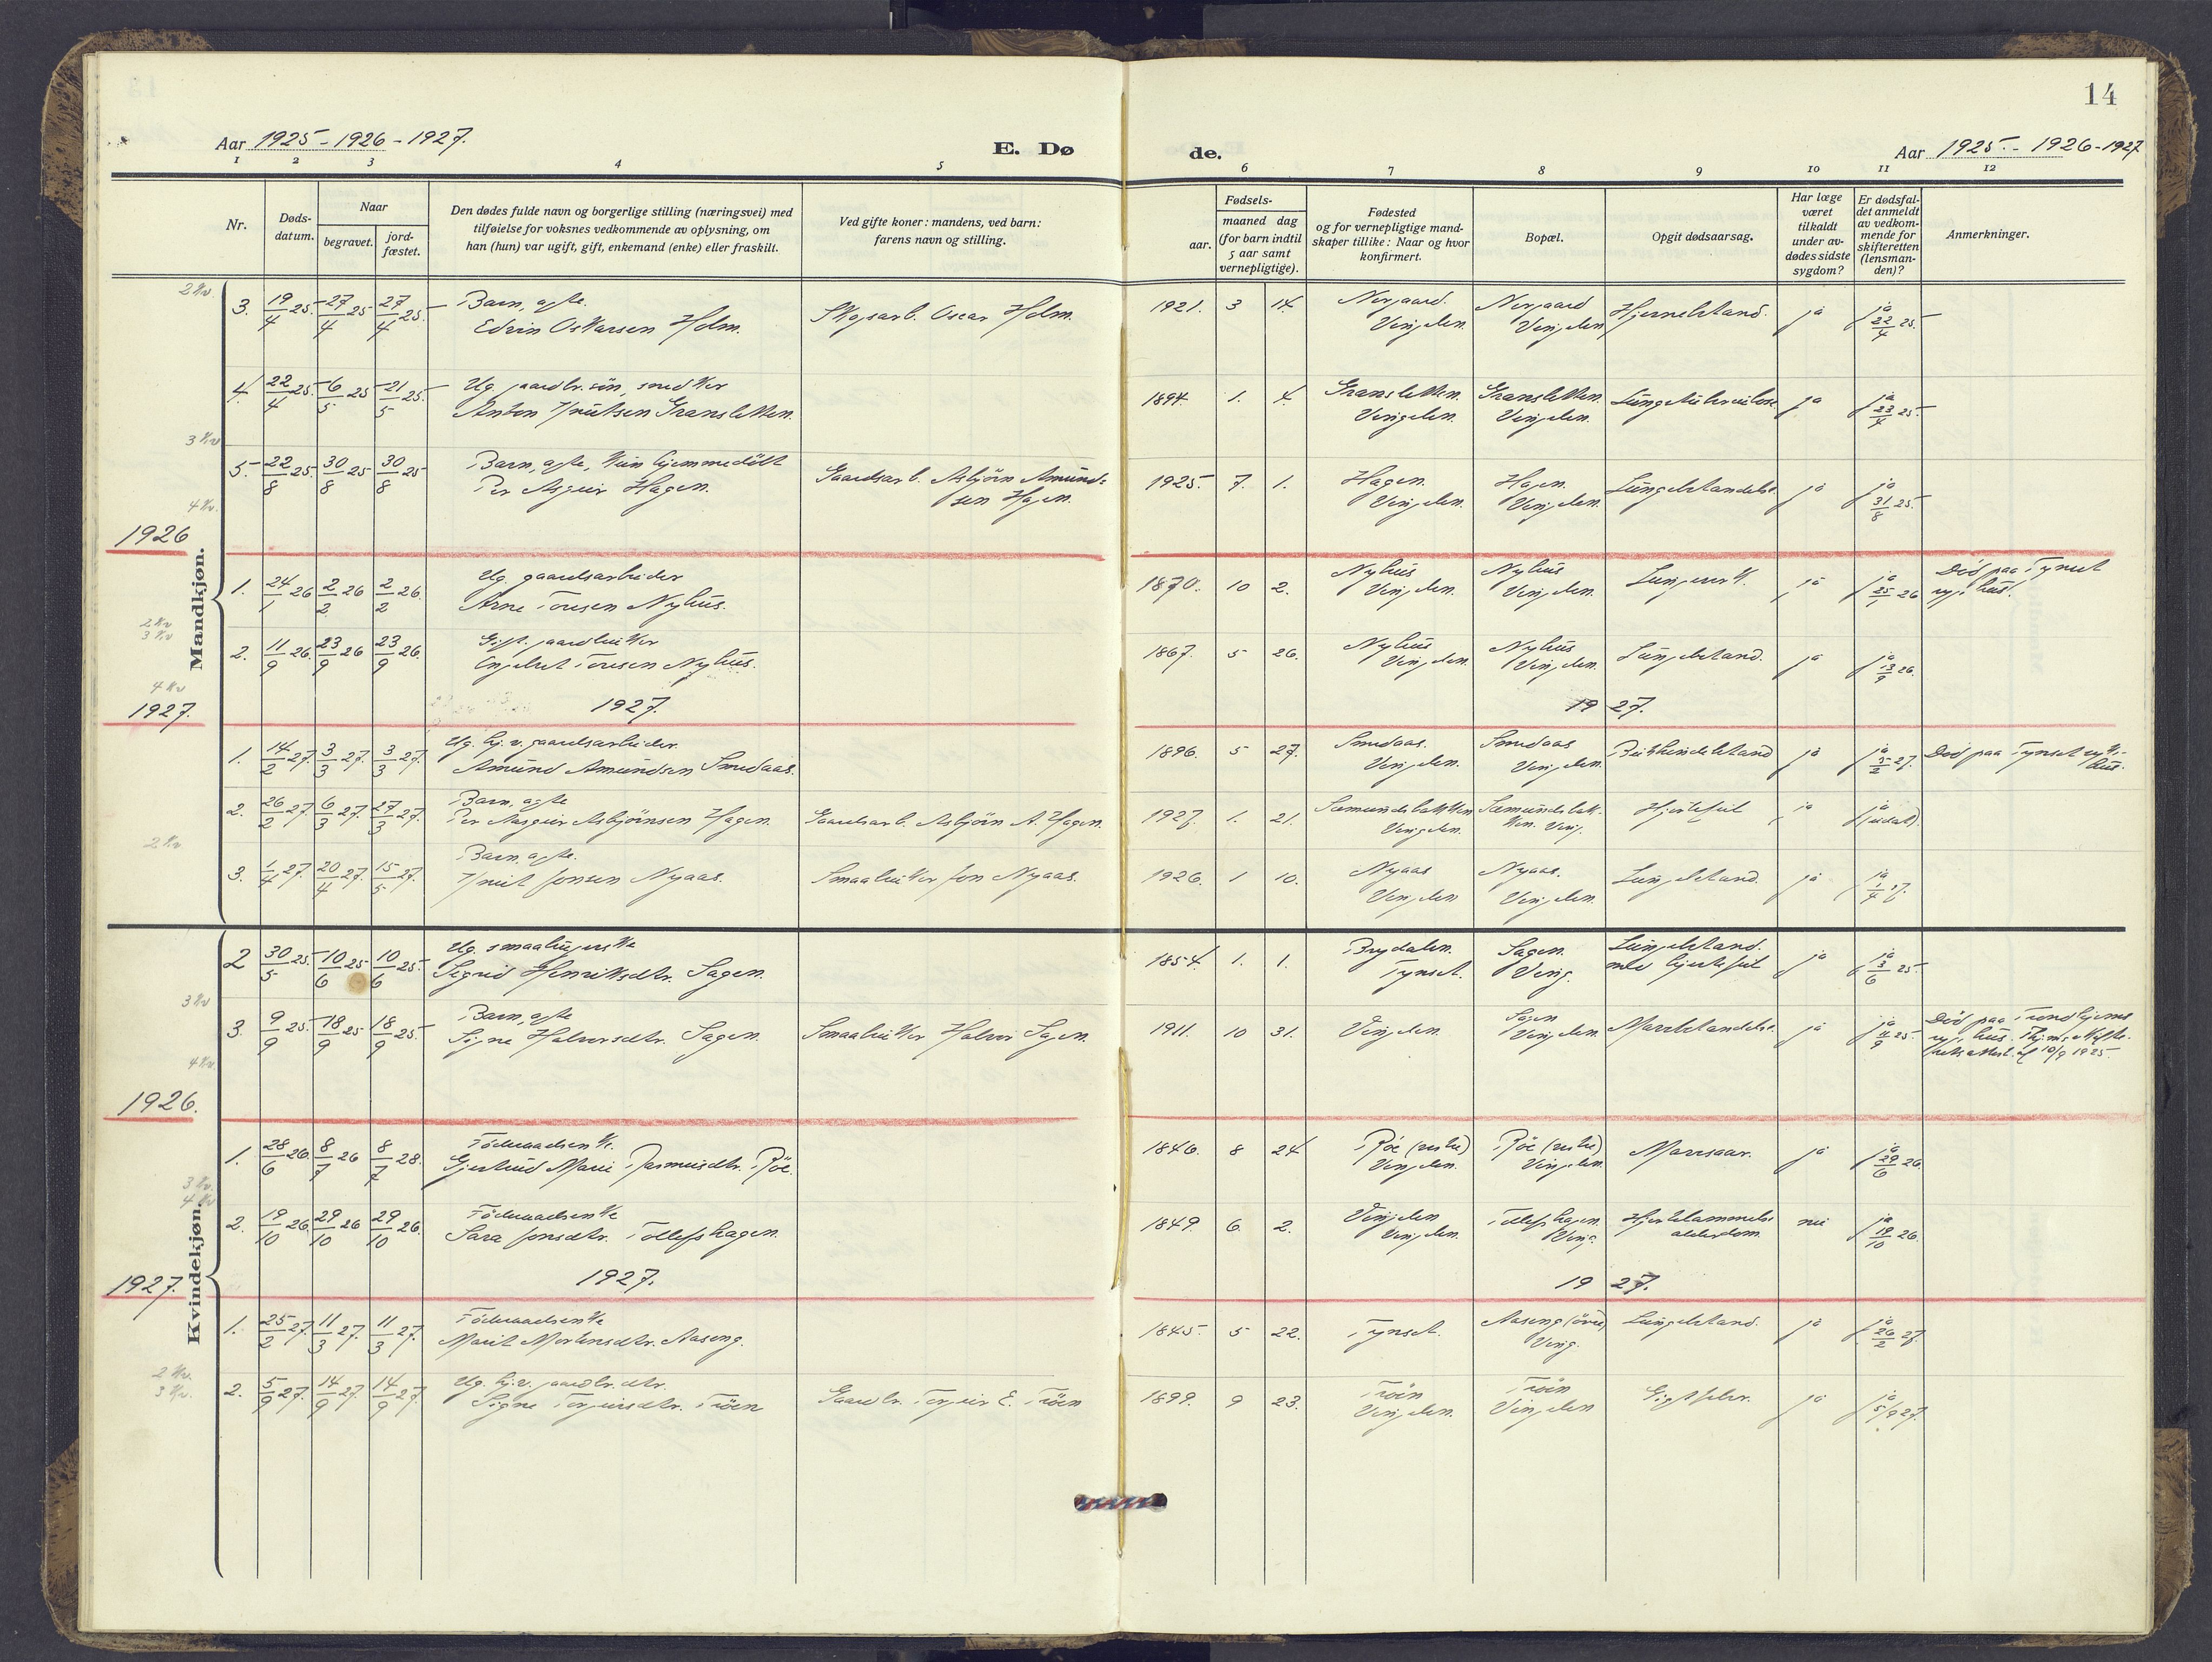 14
Aar 1925 - 1926 - 1927.
E. Dø
de.
Aar 1925. - 1926 - 1927
1 2 3 4 5
6 7 8 9 10 11 12
Nr.
Døds-
datum.
Naar
begravet.
jord-
fæstet.
Den dødes fulde navn og borgerlige stilling (næringsvei) med
tilføielse for voksnes vedkommende av oplysning, om
han (hun) var ugift, gift, enkemand (enke) eller fraskilt.
Ved gifte koner: mandens, ved barn:
farens navn og stilling.
Fødsels-
aar.
maaned dag
(for barn indtil
5 aar samt
vernepligtige).
Fødested
og for vernepligtige mand-
skaper tillike: Naar og hvor
konfirmert.
Bopæl.
Opgit dødsaarsag.
Har læge
været
tilkaldt
under av-
dødes sidste
sygdom?
Er dødsfal-
det anmeldt
av vedkom-
mende for
skifteretten
(lensman-
den)?
Anmerkninger.
Mandkjøn.
2 Kv
3. 19/4 25. 27/4 25 27/4 25. Barn, agte.
Edvin Oskarsen Holm. Skogsarb. Oscar Holm. 1921. 3 14. Norgaard. Vingelen. Norgaard Vingelen Hjernebetænd. ja ja 22/4 25.
4. 22/4 25. 6/5 25 21/5 25. Ug. gaardbr. søn, snedker
Anton Knutsen Gransletten. 1894. 1. 4. Gransletten. Vingelen. Gransletten. Vingelen. Lungetuberculose ja ja 23/4 25.
3 Kv
5. 22/8 25. 30/8 25 30/8 25 Barn, agte, kun hjemmedöbt
Per Asgeir Hagen. Gaardsarb. Asbjörn Amund-
sen Hagen. 1925. 7. 1. Hagen. Vingelen. Hagen. Vingelen. Lungebetændelse. ja ja 31/8 25.
4 Kv.
1926
1. 24/1 26 2/2 26 2/2 26. Ug. gaardsarbeider
Arne Tousen Nyhus. 1870. 10 2. Nyhus Vingelen. Nyhus Vingelen. ja ja 25/1 26 Död paa Tynset
sygehus.
2 Kv
3 Kv
2. 11/9 26. 23/9 26 23/9 26. Gift. gaardbruker
Engebret Tousen Nyhus. 1867. 5 26. Nyhus Vingelen. Nyhus Vingelen. Lungebetænd. ja ja 13/9 26.
4 Kv
1927. 1927. 1927.
1. 14/2 27. 3/3 27. 3/3 27. Ug. hj. v. gaardsarbeider.
Amund Amundsen Smedaas. 1896. 5 27. Smedaas. Vingelen. Smedaas Vingelen. Bukhindebetænd ja ja Död paa Tynset syke-
hus.
2. 26/2 27. 6/3 27. 27/3 27. Barn, agte
Per Aasgeir Asbjörnsen Hagen. Gaardsarb. Asbjörn A. Hagen. 1927. 1. 21. Sæmundsbakken Vingelen. Sæmundsbak-
ken. Ving. Hjertefeil ja ja (udat).
2 Kv.
3. 1/4 27. 20/4 27. 15/5 27. Barn, agte.
Knut Jonsen Nyaas. Smaabruker Jon Nyaas. 1926. 1 10. Nyaas Vingelen Nyaas. Vingelen. Lungebetænd. ja ja 1/4 27.
Kvindekjøn.
2 30/5 25. 10/6 25 10/6 25. Ug. smaabrugerske
Sigrid Henriksdtr. Sagen. 1854. 1. 1. Brydalen. Tynset. Sagen. Ving. Lungebetænd.
med hjertefeil ja ja 3/6 25.
3 Kv
3. 9/9 25. 18/9 25 18/9 25. Barn, agte
Signe Halvorsdtr. Sagen. Smaabruker Halvor Sagen. 1911. 10 31. Vingelen. Sagen Vingelen ja ja 11/9 25. Död paa Trondhjems
sygehus. Thj.ms skifte-
retts attest af 10/9 1925.
4 Kv.
1926.
1. 28/6 26. 8/7 26 8/7 28. Föderaadsenke.
Gjertrud Marie Rasmusdtr. Röe. 1846. 8 24 Röe (vestre) Vingelen. Röe (vestre) Vingelen. Mavesaar. ja ja 29/6 26.
3 Kv.
4 Kv
2. 19/10 26. 29/10 26 29/10 26. Föderaadsenke
Sara Jonsdtr. Tollefshagen. 1849. 6. 2. Vingelen Vingelen. Tollefshagen. Ving. Hjertelammelse
alderdom. nei ja 19/10 26.
1927. 1927. 1927.
1. 25/2 27. 11/3 27. 11/3 27. Föderaadsenke
Marit Mortensdtr. Aaseng. 1845. 5 22. Tynset. Aaseng (övre) Ving. Lungebetænd. ja ja 26/2 27.
2 Kv.
3 Kv.
2. 5/9 27. 14/9 27. 14/9 27. Ug. hj.v. gaardbr. dtr.
Signe Torgeirsdtr. Tröen Gaardbr. Torgeir E. Tröen 1899. 9 23. Tröen Vingelen. Tröen Vingelen Gigtfeber. ja ja 5/9 27.